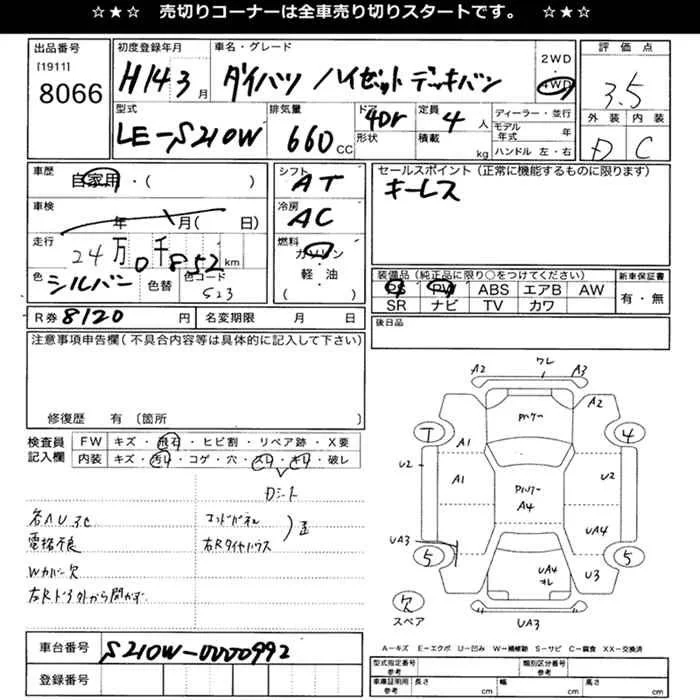 ☆★☆ 売切りコーナーは全車売り切りスタートです。 ☆★☆
出品番号
[1911]
8066
初度登録年月
H14 3月
車名・グレード
ダイハツ ハイゼット デッキバン
2WD
4WD
評価点
3.5
外装 内装
D C
型式
LE-S210W
排気量
660 CC
ドア
4Dr
形状
定員
4人
積載
kg
ディーラー・並行
モデル年式 年
ハンドル 左・右
車歴
自家用・( )
車検
年 月( 日)
走行
24万0千852 km
色
シルバー
色替
色コード
S23
シフト
AT
冷房
AC
燃料
ガソリン
軽・油
( )
セールスポイント(正常に機能するものに限ります)
キーレス
装備品(純正品に限り○をつけてください)
PS PW ABS エアB AW
SR ナビ TV カワ
新車保証書
有・無
R券 8120 円
名変期限 月 日
後日品
注意事項申告欄(不具合内容等は具体的に記入して下さい)
修復歴 有〔箇所 〕
検査員記入欄
FW キズ・飛石・ヒビ割・リペア跡・X要
内装 キズ・汚れ・コゲ・穴・スレ・キレ・破レ
Dシート
各AU、SC
電格不良
Wカバー欠
右Rドア外から開かず
エンドパネル
右Rタイヤハウス
)歪
ワレ
A2 A3
A2
パンクー
T 4
A1
U2 A1 U2
パンクー
A4
UA3 UA4
5 5
UA4
U3
欠
スペア
UA3
A-キズ E-エクボ U-凹み W-補修跡 S-サビ C-腐食 XX-交換済
車台番号
S210W-0000992
登録番号
型式指定番号
参考
類別区分番号
参考
車庫証明用
参考
長さ cm 幅 cm 高さ cm